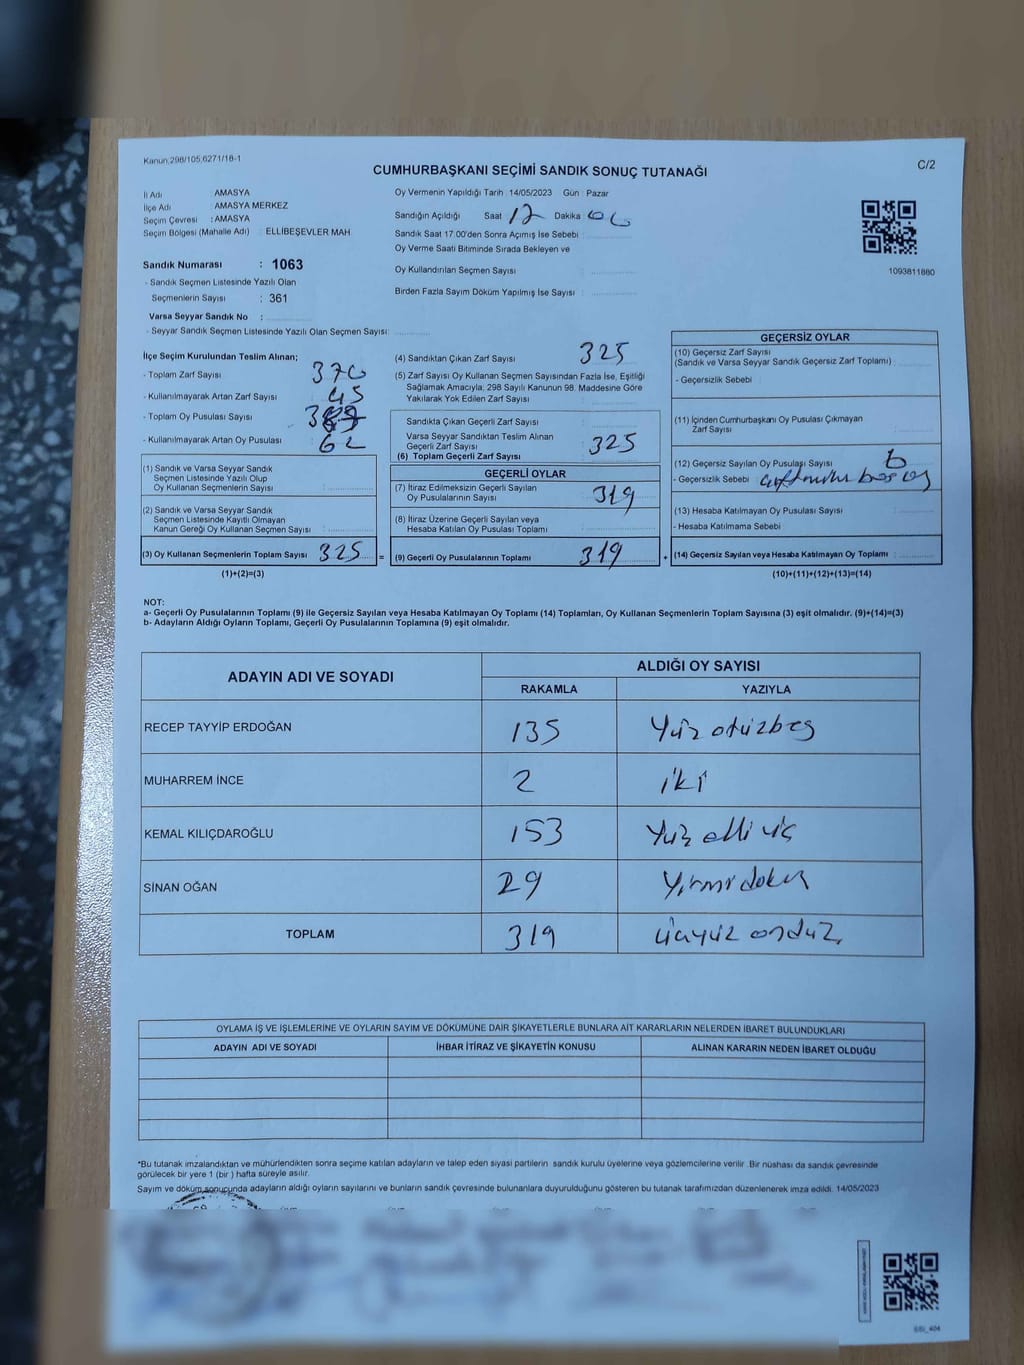 Kanun;298/105,6271/18-1
CUMHURBAŞKANI SEÇİMİ SANDIK SONUÇ TUTANAĞI
C/2
İl Adı AMASYA
İlçe Adı AMASYA MERKEZ
Seçim Çevresi : AMASYA
Seçim Bölgesi (Mahalle Adı) : ELLİBEŞEVLER MAH
Sandık Numarası : 1063
- Sandık Seçmen Listesinde Yazılı Olan
Seçmenlerin Sayısı : 361
Varsa Seyyar Sandık No :
- Seyyar Sandık Seçmen Listesinde Yazılı Olan Seçmen Sayısı:
Oy Vermenin Yapıldığı Tarih : 14/05/2023 Gün : Pazar
Sandığın Açıldığı Saat 17 Dakika : 00
Sandık Saat 17.00'den Sonra Açımış İse Sebebi :
Oy Verme Saati Bitiminde Sırada Bekleyen ve
Oy Kullandırılan Seçmen Sayısı :
Birden Fazla Sayım Döküm Yapılmış İse Sayısı :
1093811880
İlçe Seçim Kurulundan Teslim Alınan;
- Toplam Zarf Sayısı : 370
- Kullanılmayarak Artan Zarf Sayısı : 45
- Toplam Oy Pusulası Sayısı :
- Kullanılmayarak Artan Oy Pusulası : 62
(1) Sandık ve Varsa Seyyar Sandık
Seçmen Listesinde Yazılı Olup
Oy Kullanan Seçmenlerin Sayısı :
(2) Varsa Seyyar Sandık
Seçmen Listesinde Kayıtlı Olmayan
Kanun Gereği Oy Kullanan Seçmen Sayısı :
(3) Oy Kullanan Seçmenlerin Toplam Sayısı : 325 =
(1)+(2)=(3)
(4) Sandıktan Çıkan Zarf Sayısı : 325
(5) Zarf Sayısı Oy Kullanan Seçmen Sayısından Fazla İse, Eşitliği
Sağlamak Amacıyla; 298 Sayılı Kanunun 98. Maddesine Göre
Yakılarak Yok Edilen Zarf Sayısı :
Sandıkta Çıkan Geçerli Zarf Sayısı :
Varsa Seyyar Sandıktan Teslim Alınan
Geçerli Zarf Sayısı :
(6) Toplam Geçerli Zarf Sayısı : 325
GEÇERLİ OYLAR
(7) İtiraz Edilmeksizin Geçerli Sayılan
Oy Pusulalarının Sayısı : 319
(8) İtiraz Üzerine Geçerli Sayılan veya
Hesaba Katılan Oy Pusulası Toplamı :
(9) Geçerli Oy Pusulalarının Toplamı : 319 +
GEÇERSİZ OYLAR
(10) Geçersiz Zarf Sayısı
(Sandık ve Varsa Seyyar Sandık Geçersiz Zarf Toplamı) :
- Geçersizlik Sebebi :
(11) İçinden Cumhurbaşkanı Oy Pusulası Çıkmayan
Zarf Sayısı :
(12) Geçersiz Sayılan Oy Pusulası Sayısı : 6
- Geçersizlik Sebebi
(13) Hesaba Katılmayan Oy Pusulası Sayısı :
- Hesaba Katılmama Sebebi :
(14) Geçersiz Sayılan veya Hesaba Katılmayan Oy Toplamı :
(10)+(11)+(12)+(13)=(14)
NOT:
a- Geçerli Oy Pusulalarının Toplamı (9) ile Geçersiz Sayılan veya Hesaba Katılmayan Oy Toplamı (14) Toplamları, Oy Kullanan Seçmenlerin Toplam Sayısına (3) eşit olmalıdır. (9)+(14)=(3)
b- Adayların Aldığı Oyların Toplamı, Geçerli Oy Pusulalarının Toplamına (9) eşit olmalıdır.
ADAYIN ADI VE SOYADI ALDIĞI OY SAYISI
RAKAMLA YAZIYLA
RECEP TAYYİP ERDOĞAN 135 Yüz otuzbeş
MUHARREM İNCE 2 iki
KEMAL KILIÇDAROĞLU 153 Yüz elli üç
SİNAN OĞAN 29 Yirmi dokuz
TOPLAM 319 üçyüz ondokuz
OYLAMA İŞ VE İŞLEMLERİNE VE OYLARIN SAYIM VE DÖKÜMÜNE DAİR ŞİKAYETLERLE BUNLARA AİT KARARLARIN NELERDEN İBARET BULUNDUKLARI
ADAYIN ADI VE SOYADI İHBAR İTİRAZ VE ŞİKAYETİN KONUSU ALINAN KARARIN NEDEN İBARET OLDUĞU
*Bu tutanak imzalandıktan ve mühürlendikten sonra seçime katılan adayların ve talep eden siyasi partilerin sandık kurulu üyelerine veya gözlemcilerine verilir .Bir nüshası da sandık çevresinde
görülecek bir yere 1 (bir ) hafta süreyle asılır.
Sayım ve döküm sonucunda adayların aldığı oyların sayılarını ve bunların sandık çevresinde bulunanlara duyurulduğunu gösteren bu tutanak tarafımızdan düzenlenerek imza edildi. 14/05/2023